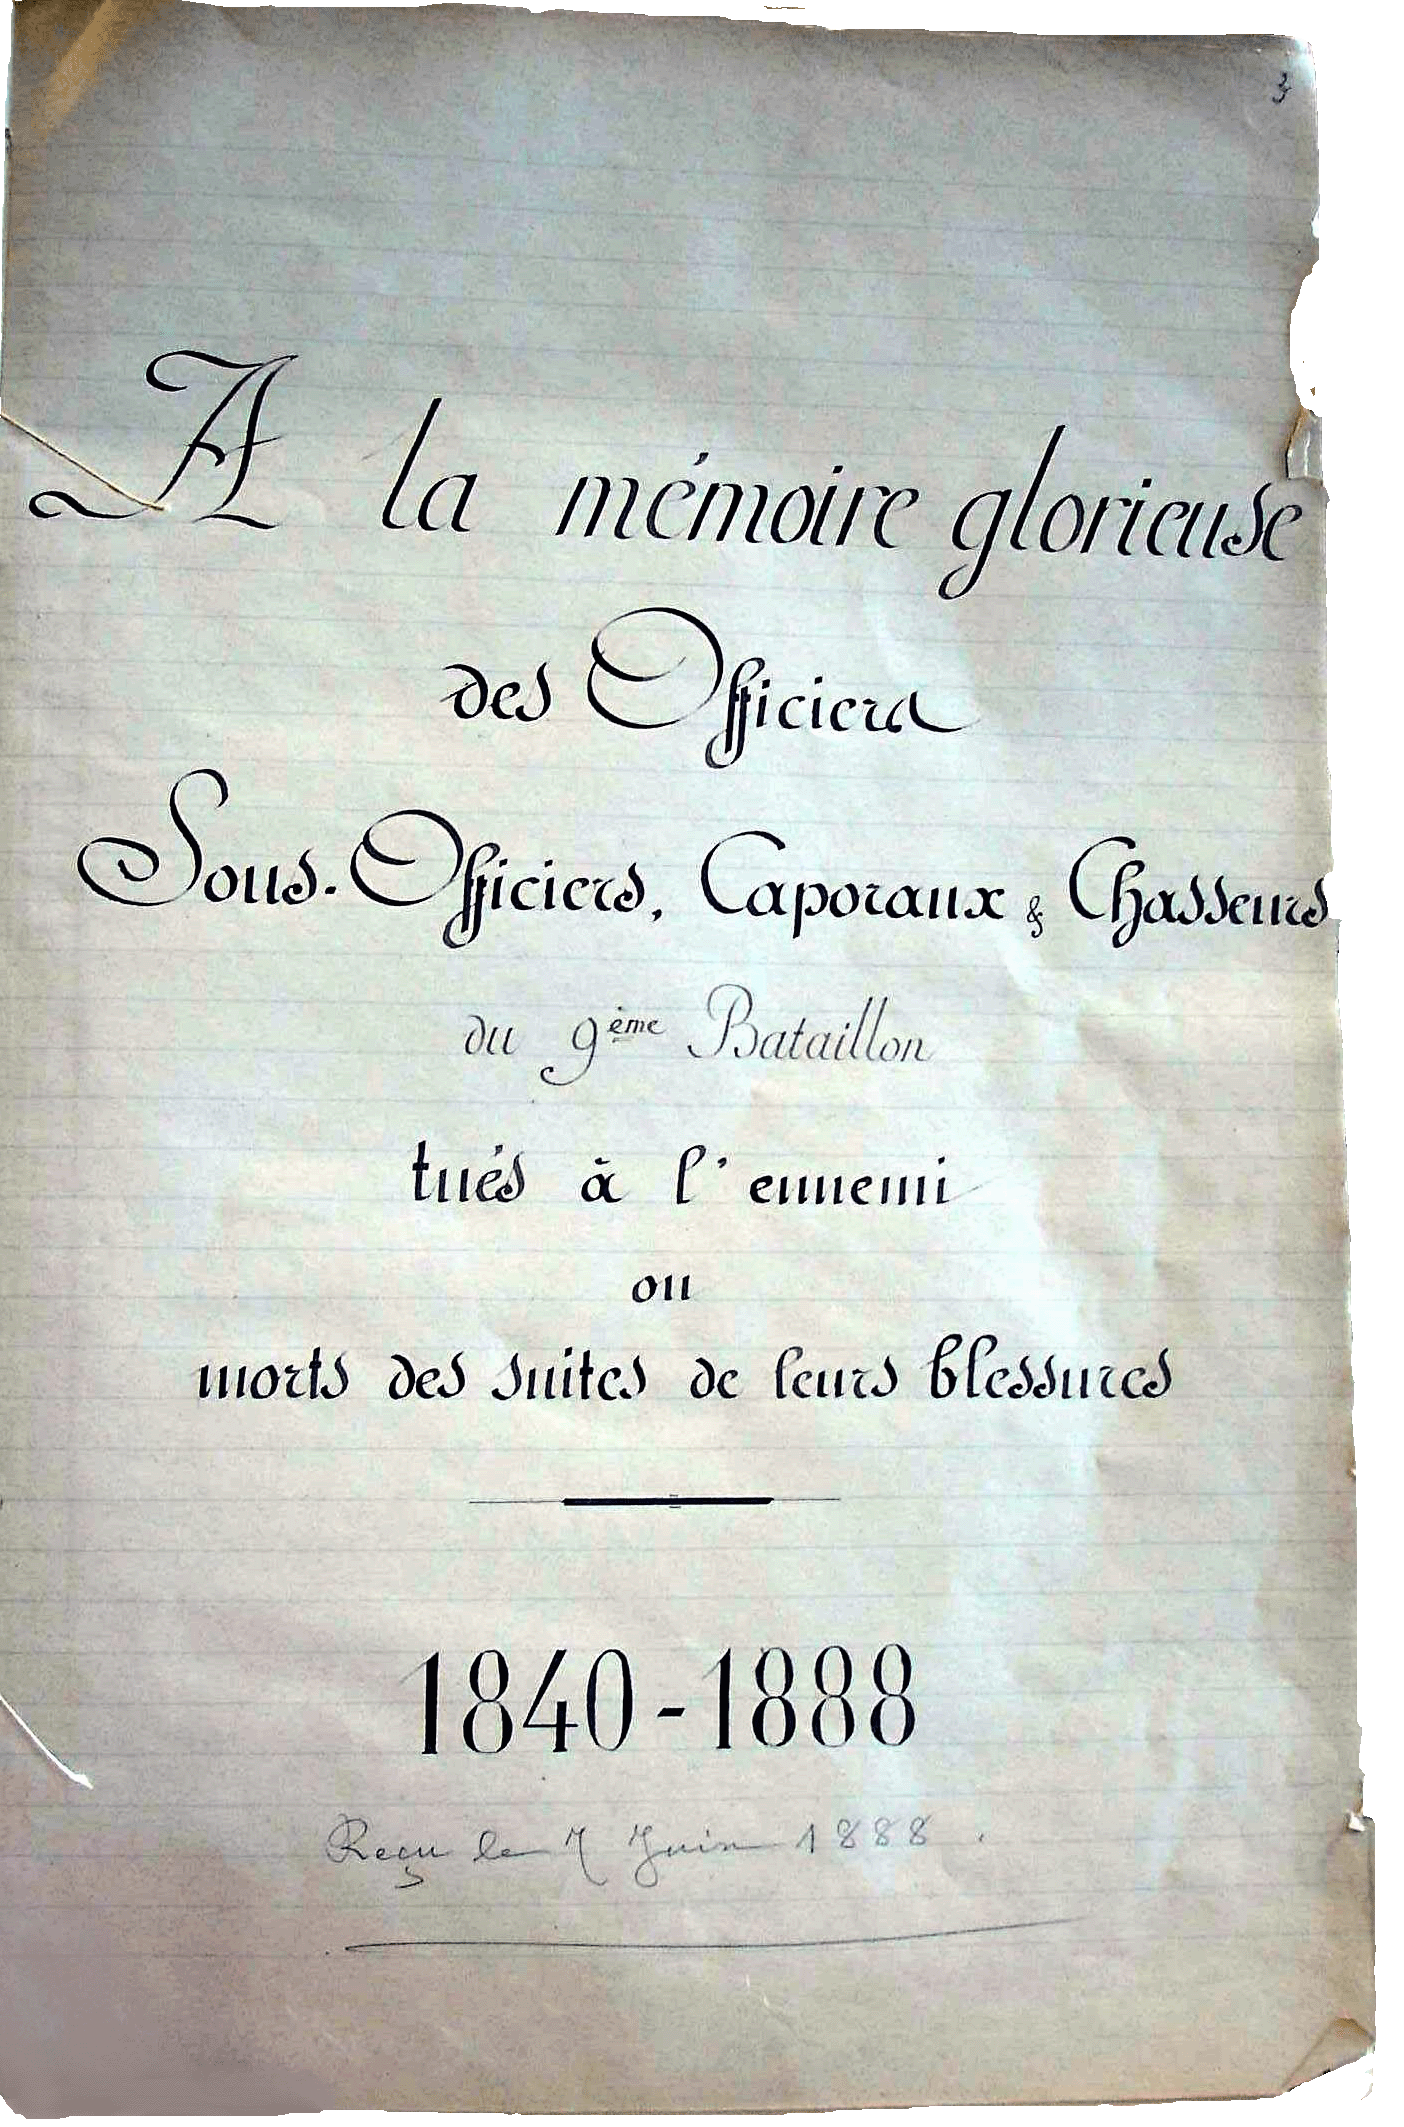 3
A la mémoire glorieuse
des Officiers
Sous-Officiers, Caporaux & Chasseurs
du 9ème Bataillon
tués à l'ennemi
ou
morts des suites de leurs blessures
1840-1888
Reçu le 7 Juin 1888.